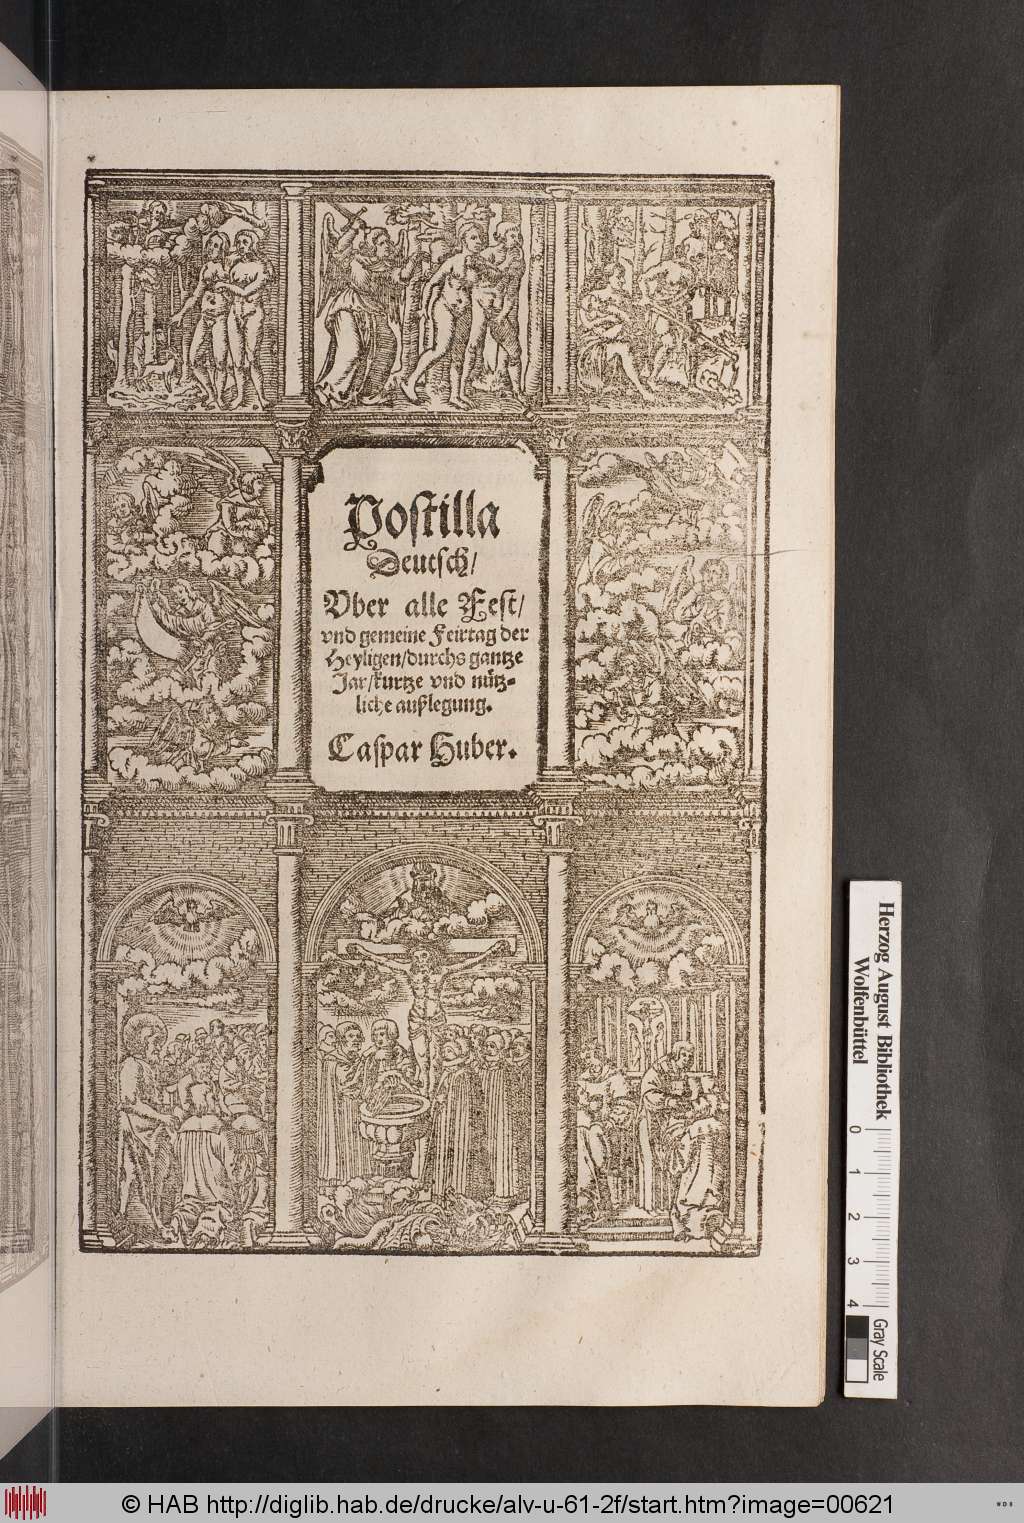 Postilla
Deutsch/
Vber alle Fest/
vnd gemeine Feirtag der
Heyligen/durchs gantze
Jar/kurtze vnd nütz-
liche außlegung.
Caspar Huber.
Herzog August Bibliothek
Wolfenbüttel
0 1 2 3 4
Gray Scale
© HAB http://diglib.hab.de/drucke/alv-u-61-2f/start.htm?image=00621